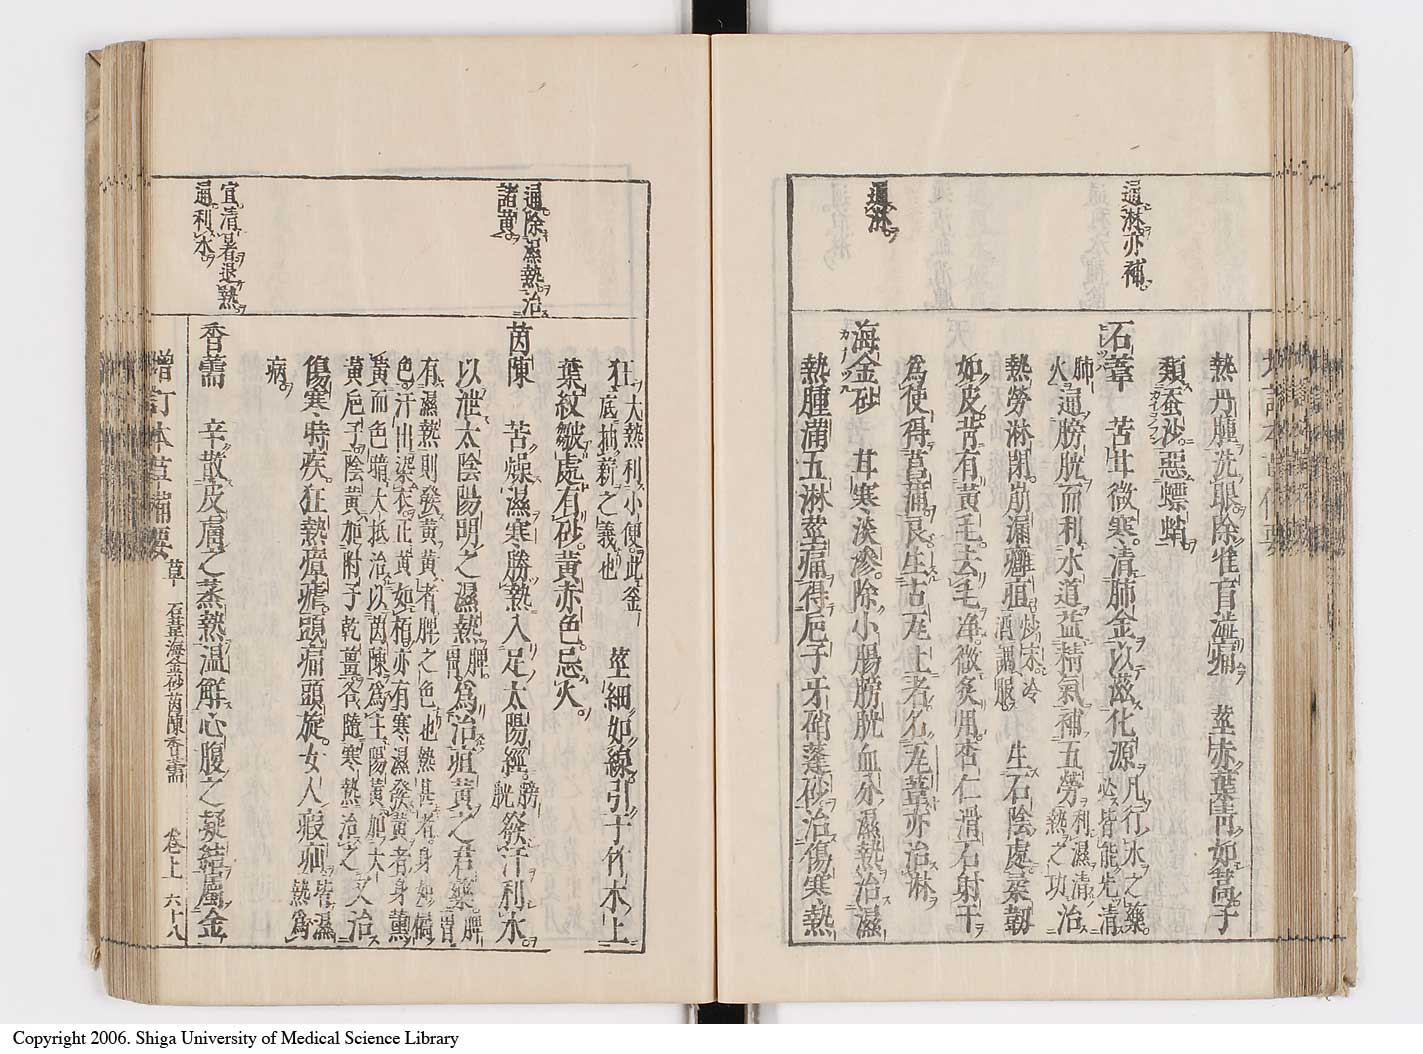 通淋亦補
通淋
熱丹腫洗眼除雀盲澁痛 莖赤葉青如蒿子
類蚕沙惡螵蛸
石葦 苦甘微寒清肺金以滋化源凡行水之藥必皆能先清
肺火通膀胱而利水道益精氣補五勞利濕清熱之功治
熱勞淋閉崩漏癰疽炒末冷酒調服 生石陰處柔韌
如皮背有黃毛去毛淨微炙用杏仁滑石射干
為使得菖蒲良生古瓦上者名瓦葦亦治淋
海金砂 甘寒淡滲除小腸膀胱血分濕熱治濕
熱腫滿五淋莖痛得巵子牙硝蓬砂治傷寒熱
通除濕熱治
諸黃
宜清暑退熱
通利水
狂大熱利小便此釜底抽薪之義也 莖細如線引于竹木上
葉紋皺處有砂黃赤色忌火
茵陳 苦燥濕寒勝熱入足太陽經膀胱發汗利水
以泄太陰陽明之濕熱脾胃為治疸黃之君藥脾胃
有濕熱則發黃黃者脾之色也熱甚者身如橘
色汗出染衣正黃如栢亦有寒濕發黃者身薰
黃而色暗大抵治以茵陳為主陽黃加大
黃巵子陰黃加附子乾薑各隨寒熱治之又治
傷寒時疾狂熱瘴瘧頭痛頭旋女人瘕疝皆濕熱為
病
香薷 辛散皮膚之蒸熱溫解心腹之凝結屬金
增訂本草備要 草 石葦海金砂茵陳香薷 卷上 六十八
Copyright 2006. Shiga University of Medical Science Library